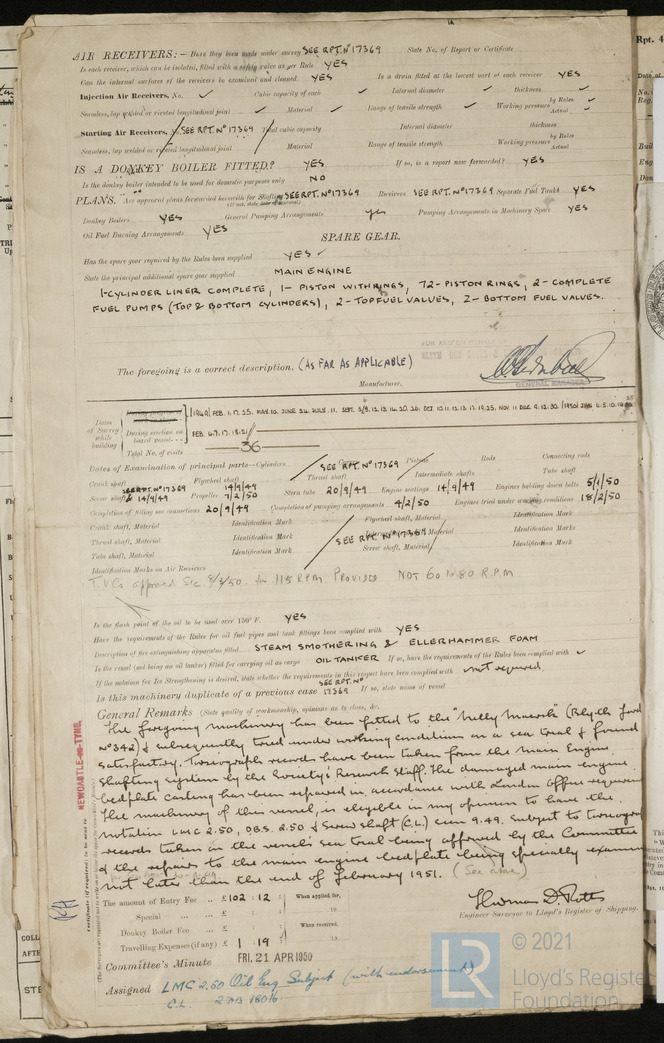 AIR RECEIVERS:— Have they been made under survey SEE RPT. No 17369 State No. of Report or Certificate
Is each receiver, which can be isolated, fitted with a safety valve as per Rule YES
Can the internal surfaces of the receivers be examined and cleaned YES Is a drain fitted at the lowest part of each receiver YES
Injection Air Receivers, No. ✓ Cubic capacity of each ✓ Internal diameter ✓ thickness ✓
Seamless, lap welded or riveted longitudinal joint ✓ Material ✓ Range of tensile strength ✓ Working pressure by Rules ✓ Actual ✓
Starting Air Receivers, No. SEE RPT. No 17369 Total cubic capacity Internal diameter thickness
Seamless, lap welded or riveted longitudinal joint Material Range of tensile strength Working pressure by Rules Actual
IS A DONKEY BOILER FITTED? YES If so, is a report now forwarded? YES
Is the donkey boiler intended to be used for domestic purposes only NO
PLANS. Are approved plans forwarded herewith for Shafting SEE RPT. No 17369 Receivers SEE RPT. No 17369 Separate Fuel Tanks YES
(If not, state date of approval)
Donkey Boilers YES General Pumping Arrangements yes Pumping Arrangements in Machinery Space YES
Oil Fuel Burning Arrangements YES
SPARE GEAR.
Has the spare gear required by the Rules been supplied YES ✓
State the principal additional spare gear supplied MAIN ENGINE
1-CYLINDER LINER COMPLETE, 1-PISTON WITH RINGS, 72-PISTON RINGS, 2-COMPLETE
FUEL PUMPS (TOP & BOTTOM CYLINDERS), 2-TOP FUEL VALVES, 2-BOTTOM FUEL VALVES.
The foregoing is a correct description. (AS FAR AS APPLICABLE)
GENERAL MANAGER
Manufacturer.
Dates of Survey while building
During erection on board vessel
(1949) FEB. 1.17.25. MAY.10. JUNE 24. JULY.11.
FEB. 6.7.17.18.21
Total No. of visits 36
Dates of Examination of principal parts—Cylinders SEE RPT. No 17369 Pistons Rods Connecting rods
Crank shaft SEE RPT. No 17369 Flywheel shaft 14/9/49 Thrust shaft Intermediate shafts Tube shaft
Screw shaft 14/9/49 Propeller 7/2/50 Stern tube 20/9/49 Engine seatings 14/9/49 Engines holding down bolts 5/1/50
Completion of fitting sea connections 20/9/49 Completion of pumping arrangements 4/2/50 Engines tried under working conditions 18/2/50
Crank shaft, Material Identification Mark Flywheel shaft, Material Identification Mark
Thrust shaft, Material Identification Mark SEE RPT. No 17369 Material Identification Marks
Tube shaft, Material Identification Mark Screw shaft, Material Identification Mark
Identification Marks on Air Receivers
T.V.Cs approved Sec 8/3/50. for 115 R.P.M. PROVIDED NOT 60 to 80 R.P.M
Is the flash point of the oil to be used over 150° F. YES
Have the requirements of the Rules for oil fuel pipes and tank fittings been complied with YES
Description of fire extinguishing apparatus fitted STEAM SMOTHERING & ELLERHAMMER FOAM
Is the vessel (not being an oil tanker) fitted for carrying oil as cargo OIL TANKER If so, have the requirements of the Rules been complied with ✓
If the notation for Ice Strengthening is desired, state whether the requirements in this respect have been complied with not required
Is this machinery duplicate of a previous case SEE RPT. No 17369 If so, state name of vessel
General Remarks (State quality of workmanship, opinions as to class, &c.
The foregoing machinery has been fitted to the "Nelly Maersk" (Blyth
No 342) & subsequently tried under working conditions on a sea trial & found
satisfactory. Torsiograph records have been taken from the main Engine
shafting system by the Society's Research Staff. The damaged main engine
bedplate casting has been repaired in accordance with London Office
The machinery of this vessel, is eligible in my opinion to have the
notation LMC 2.50, DBS. 2.50 & Screwshaft (C.L.) seen 9.49. Subject to torsiograph
records taken on the vessel's sea trial being approved by the Committee
& the repairs to the main engine bedplate being specially
not later than the end of February 1951. (See above)
NEWCASTLE-on-TYNE.
The amount of Entry Fee £102 : 12 : When applied for,
Special £ : :
Donkey Boiler Fee £ : : When received,
Travelling Expenses (if any) £ 1 : 19 :
Herman D. Potts
Engineer Surveyor to Lloyd's Register of Shipping.
Committee's Minute FRI. 21 APR 1950
Assigned LMC 2.50 Oil Eng Subject (with endorsement)
C.L. 2DB 180 lb
LR © 2021
Lloyd's Register
Foundation
Rpt. 4